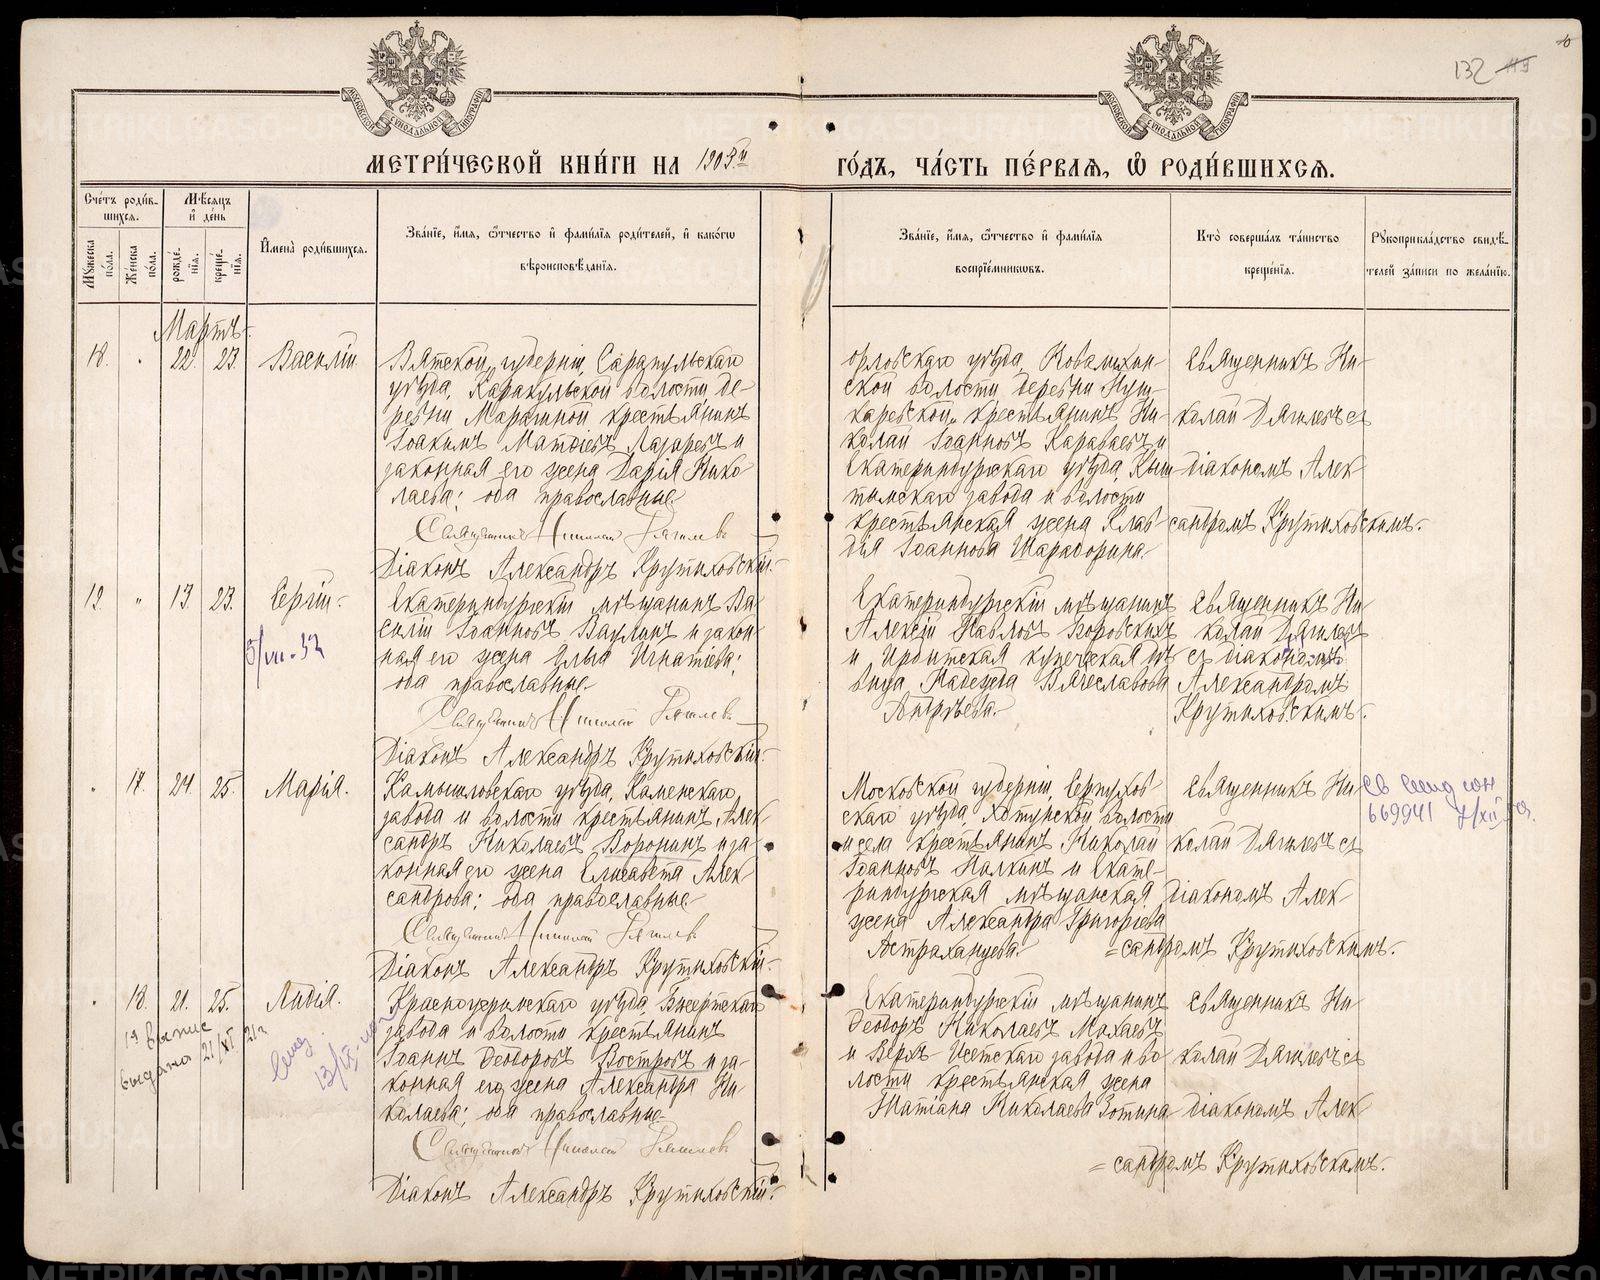 132 119
МЕТРИ́ЧЕСКОЙ КНИ́ГИ НА 1903й ГО́ДЪ, ЧА́СТЬ ПЕ́РВАЯ, Ѡ РОДИ́ВШИХСЯ.
Сче́тъ роди́вшихся.
Му́жеска по́ла.
Же́нска по́ла.
Мѣ́сяцъ и де́нь
рожде́нїя.
креще́нїя.
Имена̀ роди́вшихся.
Зва́нїе, и́мя, ѻ́тчество и фами́лїя роди́телей, и како́гѡ
вѣроисповѣ́данїя.
Зва́нїе, и́мя, ѻ́тчество и фами́лїя
воспрїе́мникѡвъ.
Кто̀ соверша́лъ та́инство
креще́нїя.
Рукоприкла́дство свидѣ́телей за́писи по жела́нїю.
Мартъ
18. " 22. 23. Василій.
Вятской губерніи, Сарапульскаго
уѣзда, Каракульской волости, де-
ревни Марагиной крестьянинъ
Іоакимъ Матѳіевъ Лазаревъ и
законная его жена Дарія Нико-
лаева; оба православные
Священникъ Николай Дягилевъ
Діаконъ Александръ Крутиховскій.
орловскаго уѣзда,
ской волости деревни
крестьянинъ Ни-
колай Іоанновъ Караваевъ и
Екатеринбургскаго уѣзда, Кыш-
тымскаго завода и волости
крестьянская жена Клав-
дія Іоаннова
Священникъ Ни-
колай Дягилевъ съ
діакономъ Алек-
сандромъ Крутиховскимъ.
19. " 13. 23. Сергій.
5/VII-52
Екатеринбургскій мѣщанинъ Ва-
силій Іоанновъ Ваулинъ и закон-
ная его жена Юлія Игнатіева;
оба православные
Священникъ Николай Дягилевъ
Діаконъ Александръ Крутиховскій.
Екатеринбургскій мѣщанинъ
Алексій Павловъ Боровскихъ
и Ирбитская купеческая дѣ-
вица Надежда Вячеславова
Андреева.
Священникъ Ни-
колай Дягилевъ
съ діакономъ
Александромъ
Крутиховскимъ.
" 17. 24. 25. Марія.
Камышловскаго уѣзда, Каменскаго
завода и волости крестьянинъ Алек-
сандръ Николаевъ Воронинъ и за-
конная его жена Елисавета Алек-
сандрова; оба православные
Священникъ Николай Дягилевъ
Діаконъ Александръ Крутиховскій.
Московской губерніи, Серпухов-
скаго уѣзда, Хатунской волости
и села крестьянинъ Николай
Іоанновъ Налкинъ и Екате-
ринбургская мѣщанская
жена Александра Григоріева
Астраханцева.
Священникъ Ни-
колай Дягилевъ съ
діакономъ Алек-
=сандромъ Крутиховскимъ.
669941
" 18. 21. 25. Лидія.
выдана 21/XI
13/IX
Красноуфимскаго уѣзда, Бисертскаго
завода и волости крестьянинъ
Іоаннъ Ѳеодоровъ Востровъ и за-
конная его жена Александра Ни-
колаева; оба православные
Священникъ Николай Дягилевъ
Діаконъ Александръ Крутиховскій.
Екатеринбургскій мѣщанинъ
Ѳеодоръ Николаевъ Махаевъ
и Верхъ Исетскаго завода и во-
лости крестьянская жена
Татіана Николаева Зотина
Священникъ Ни-
колай Дягилевъ съ
діакономъ Алек-
=сандромъ Крутиховскимъ.
METRIKI.GASO-URAL.RU